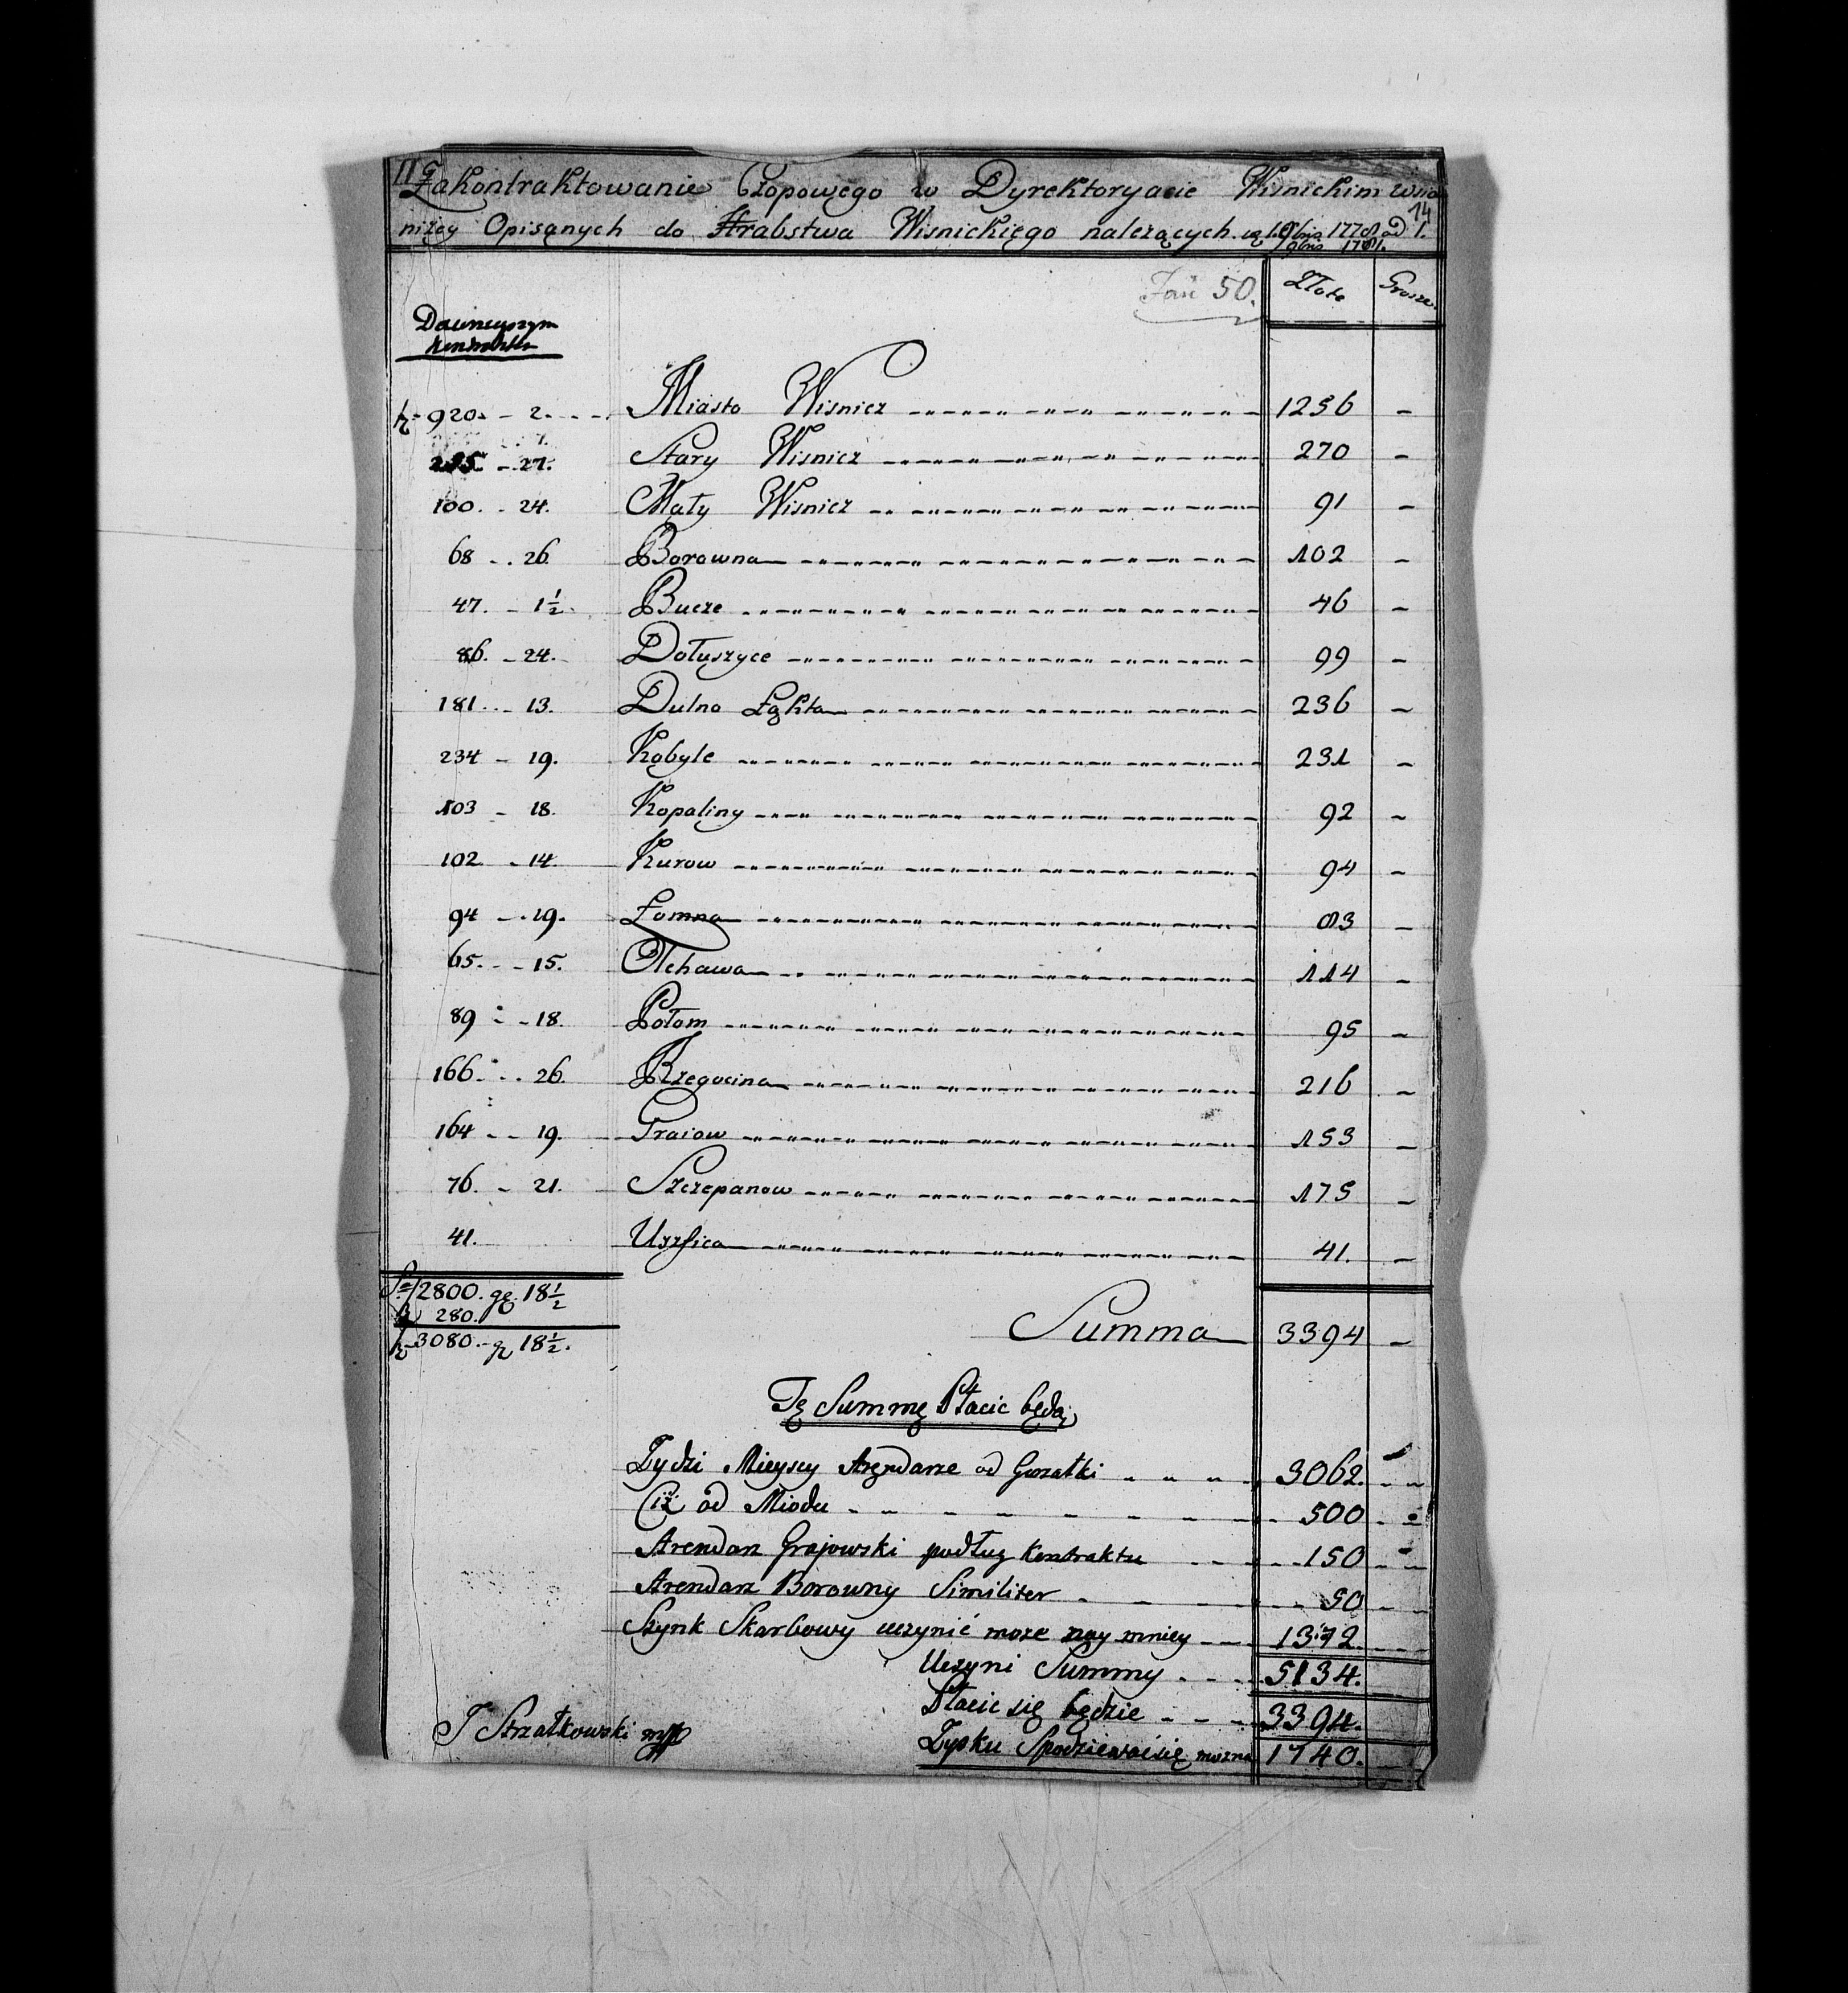 II Zakontraktowanie Czopowego w Dyrektoryacie Wisnickim
14
niżey Opisanych do Hrabstwa Wisnickiego należących 1778 od 1.
1781.
50. Złote Grosze
Dawnieyszym
kontraktu
920. - 2. Miasto Wisnicz 1256 -
27. Stary Wisnicz 270 -
100. - 24. Mały Wisnicz 91 -
68 - 26. Borowna 102 -
47. - 1½. Bucze 46 -
86. - 24. Dołuszyce 99 -
181. - 13. Dulna Łąkta 236 -
234 - 19. Kobyle 231 -
103 - 18. Kopaliny 92 -
102 - 14. Kurow 94 -
94 - 19. Łomna 83 -
65. - 15. Olchawa 114 -
89 - 18. Połom 95 -
166. - 26. Rzegocina 216 -
164 - 19. Graiow 153 -
76. - 21. Szczepanow 175 -
41. Uzżica 41. -
2800. gr. 18½
280.
3080. gr 18½. Summa 3394 -
Tę Summę Płacic będą
Żydzi Mieyscy Arędarze od Gorzałki 3062.
Ciż od Miodu 500
Arendarz Grajowski podług Kontraktu 150
Arendarz Borowny Similiter 50
Szynk Skarbowy uczynić może nay mniey 1372.
Uczyni Summy 5134.
Płacic się będzie 3394.
J Strzałkowski mpp
Zysku Spodziewać się można 1740.